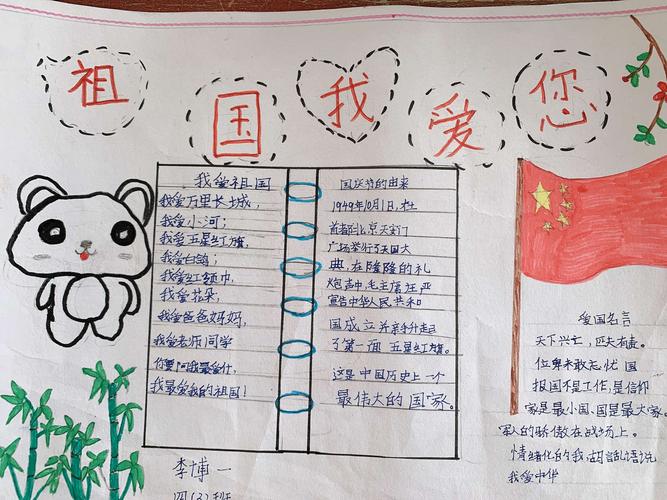 祖国我爱您
我爱祖国
我爱万里长城,
我爱小河;
我爱五星红旗,
我爱白鸽;
我爱红领巾,
我爱花朵,
我爱爸爸妈妈,
我爱老师同学
你要问我最爱什,
我最爱我的祖国!
国庆节的由来
1949年10月1日,在
首都北京天安门
广场举行了天国大
典,在隆隆的礼
炮声中,毛主席庄严
宣告中华人民共和
国成立并亲手升起
了第一面五星红旗。
这是中国历史上一个
最伟大的国家。
爱国名言
天下兴亡,匹夫有责。
位卑未敢忘忧国
报国不是工作,是信仰
家是最小国,国是最大家。
军人的骄傲在战场上。
情绪化的我胡言乱语说
我爱中华
李博一
四(3)班